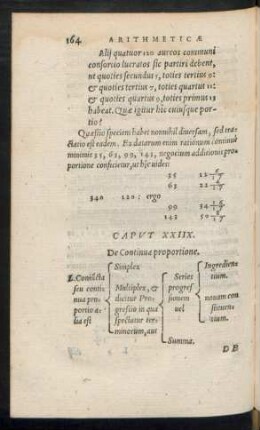 164 ARITHMETICÆ
Alij quatuor 120 aureos communi
consortio lucratos sic partiri debent,
ut quoties secundus 5, toties tertius 9:
& quoties tertius 7, toties quartus 11:
& quoties quartus 9, toties primus 13
habeat. Quæ igitur hic cuiusque por-
tio?
Quæstio speciem habet nonnihil diversam, sed tra-
ctatio est eadem. Ex datorum enim rationum continui
minimis 35, 63, 99, 143, negotium additionis pro-
portione conficietur, ut hîc vides:
35
63 22
340 120: ergo
99 34
143 50
CAPUT XXIIX.
De Continua proportione.
Simplex
I. Conjuncta
seu conti-
nua pro-
portio a-
lia est
Multiplex, &
dicitur Pro-
gressio in qua
spectatur ter-
minorum, aut
Series
progres-
sionem
vel
Summa.
Ingredien-
tium.
novam con-
stituen-
tium.
DE